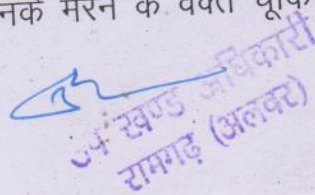 नके मरने के वक्त चूंकि
उप खण्ड अधिकारी
रामगढ़ (अलवर)